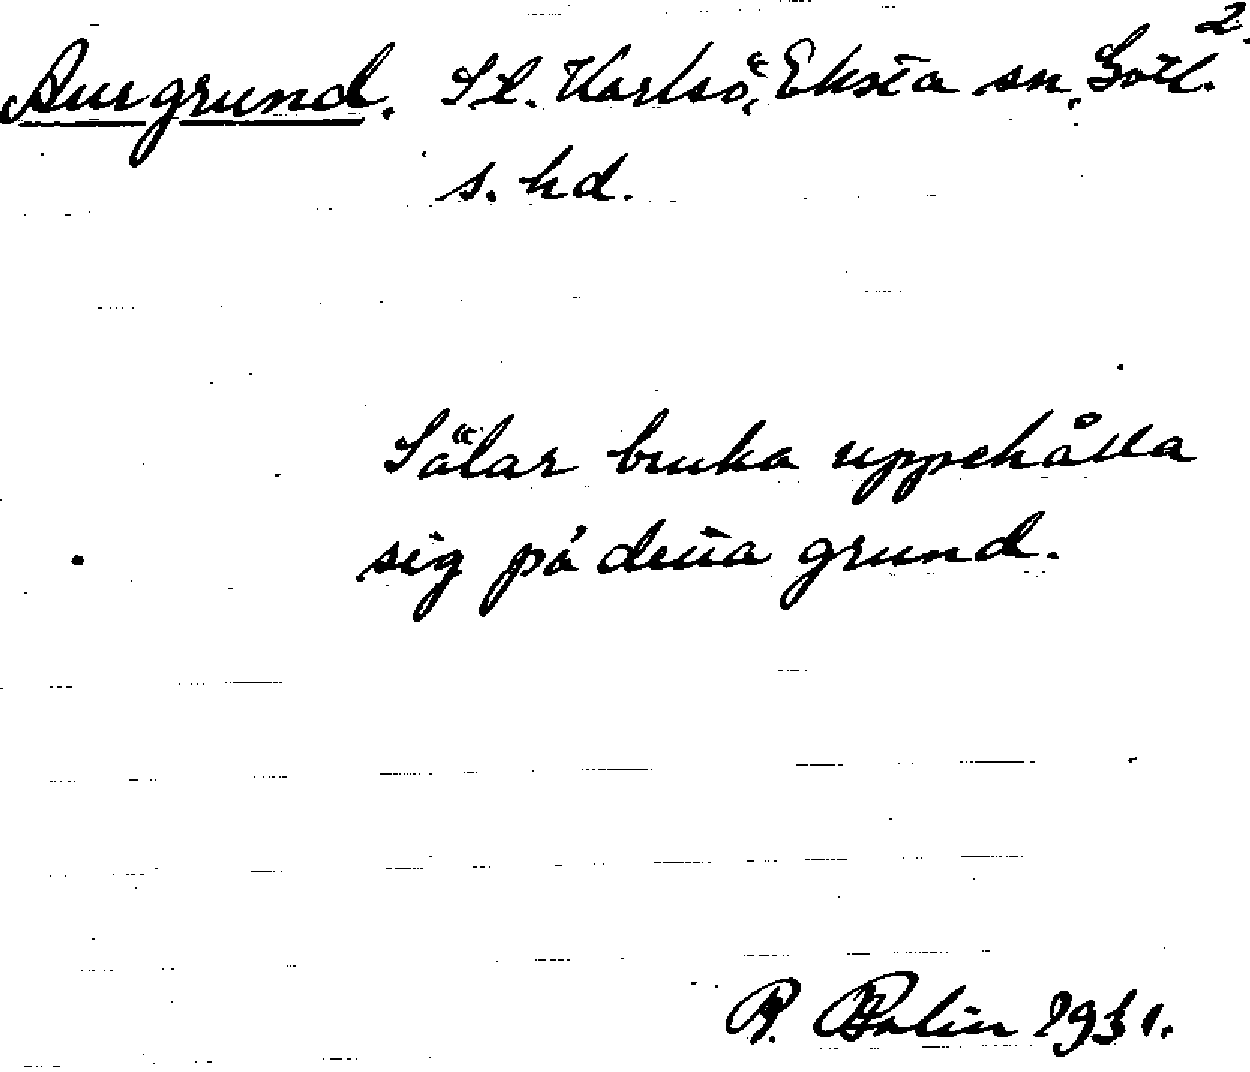 2.
Aurgrund. St. Karlsö, Eksta sn, Gotl.
s. hd.
Sälar bruka uppehålla
sig på denna grund.
R. Bolin 1931.